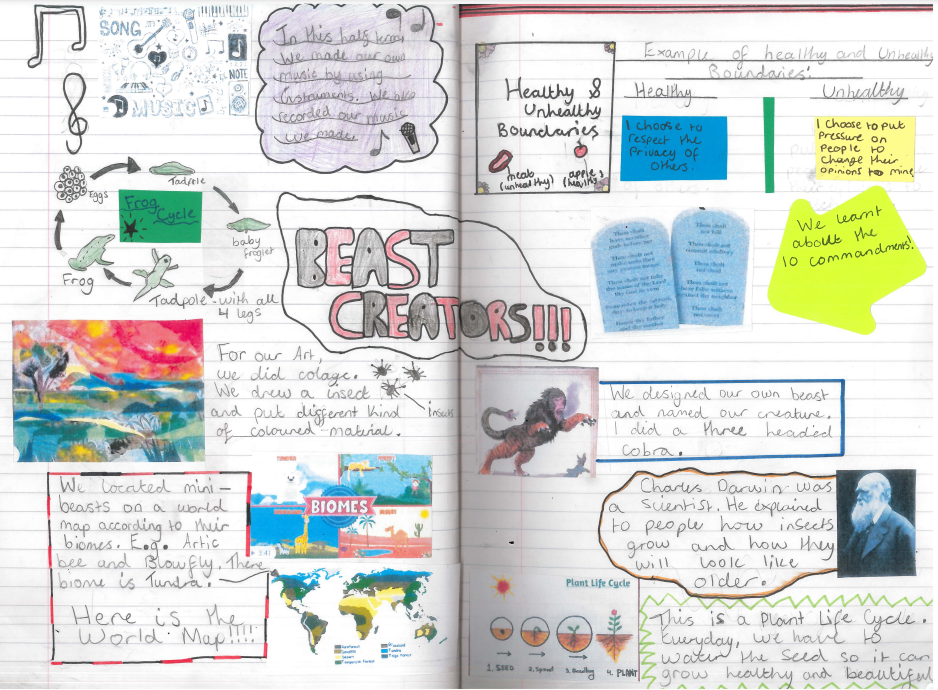 SONG
NOTE
MUSIC
In this half term
We made our own
music by using
instruments. We also
recorded our music
we made.
Eggs
Tadpole
Frog
Cycle
baby
froglet
Frog
Tadpole - with all
4 legs
BEAST
CREATORS!!!
For our Art,
we did colage.
We drew a insect
and put different kind
of coloured material.
insects
We located mini-
beasts on a world
map according to their
biomes. E.g. Artic
bee and Blowfly. There
biome is Tundra.
Here is the
World Map!!!!
TUNDRA
BIOMES
Healthy &
Unhealthy
Boundaries
meat
(unhealthy)
apple
(healthy)
Example of healthy and Unhealthy
Boundaries:
Healthy
Unhealthy
I choose to
respect the
Privacy of
others.
I choose to put
Pressure on
People to
Change their
opinions to mine
We learnt
about the
10 commandments!
We designed our own beast
and named our creature.
I did a three headed
cobra.
Charles Darwin was
a scientist. He explained
to people how insects
grow and how they
will look like
older.
Plant Life Cycle
1. SEED
2. Sprout
4. PLANT
This is a Plant Life Cycle.
Everyday, we have to
water the seed so it can
grow healthy and beautiful